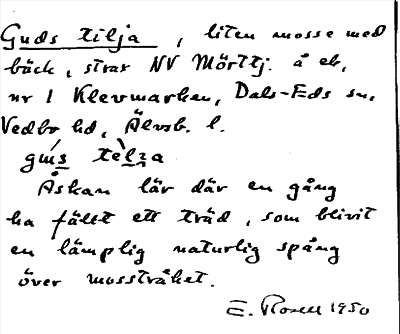 Guds tilja, liten mosse med
bäck, strax NV Mörttj. å ek,
nr 1 Klevmarken, Dals-Eds sn,
Vedbo hd, Älvsb. l.
gu̇s tèlza
Åskan lär där en gång
ha fällt ett träd, som blivit
en lämplig naturlig spång
över mosstråket.
E. Rosell 1950